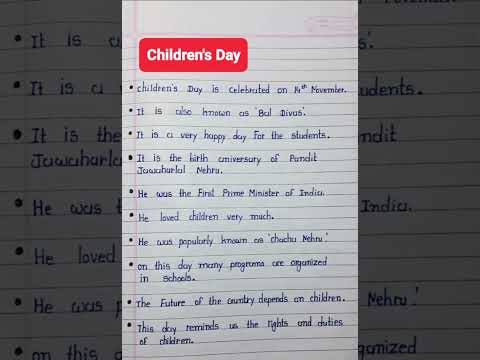 Children's Day
• children's Day is Celebrated on 14th November.
• It is also known as 'Bal Divas'.
• It is a very happy day For the students.
• It is the birth aniversary of Pandit
Jawaharlal Nehru.
• He was the First Prime Minister of India.
• He loved children very much.
• He was popularly known as 'chachu Nehru.'
• on this day many programs are organized
in schools.
• The Future of the country depends on children.
• This day reminds us the rights and duties
of children.